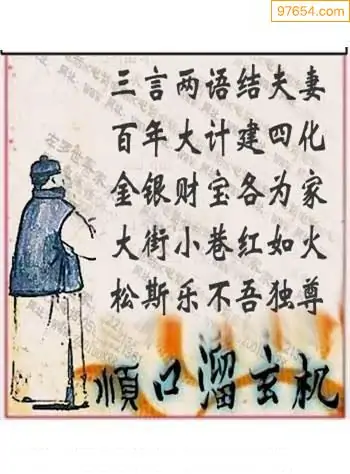 97654.com
三言两语结夫妻
百年大计建四化
金银财宝各为家
大街小巷红如火
松斯乐不吾独尊
順口溜玄机